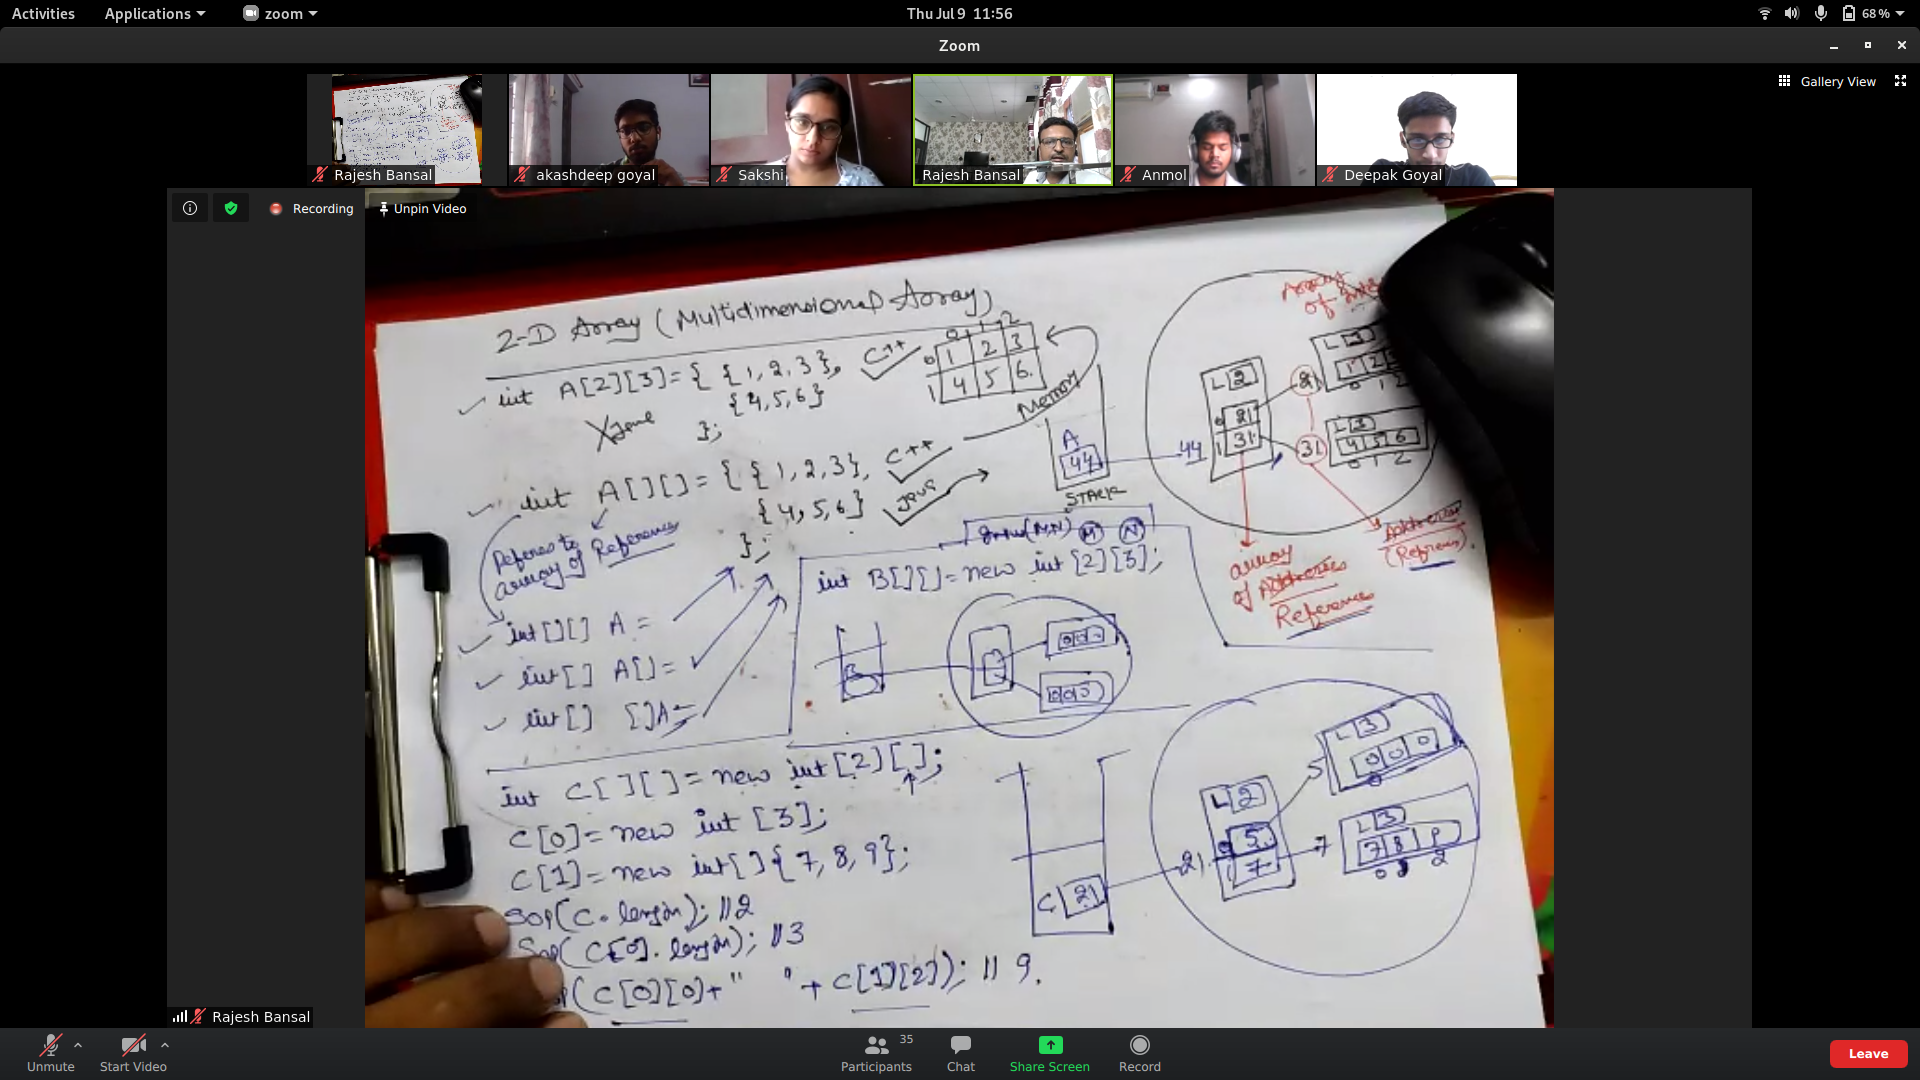 Activities Applications zoom Thu Jul 9 11:56 68%
Zoom
Gallery View
Rajesh Bansal akashdeep goyal Sakshi Rajesh Bansal Anmol Deepak Goyal
Recording Unpin Video
2-D Array (Multidimensional Array)
int A[2][3]={ {1,2,3}, C++
{4,5,6}
};
X Java
0 1 2
0 1 2 3
1 4 5 6
Memory
int A[][]={ {1,2,3}, C++
{4,5,6} Java
};
Referes to
array of Reference
A
44
STACK
44
L 2
0 21
1 31
21
31
Array
of
L 3
1 2
0 1 2
L 3
4 5 6
0 1 2
array
of Addresses
Reference
int[][] A =
int[] A[]=
int[] []A=
M N
int B[][]=new int[2][3];
B
int C[][]=new int[2][];
C[0]=new int[3];
C[1]=new int[]{7,8,9};
Sop(C.length); //2
Sop(C[0].length); //3
(C[0][0]+" "+C[1][2]); // 9.
C 21
21
L 2
0 5
1 7
5
L 3
0 0 0
7
L 3
7 8 9
Rajesh Bansal
Unmute Start Video Participants 35 Chat Share Screen Record Leave